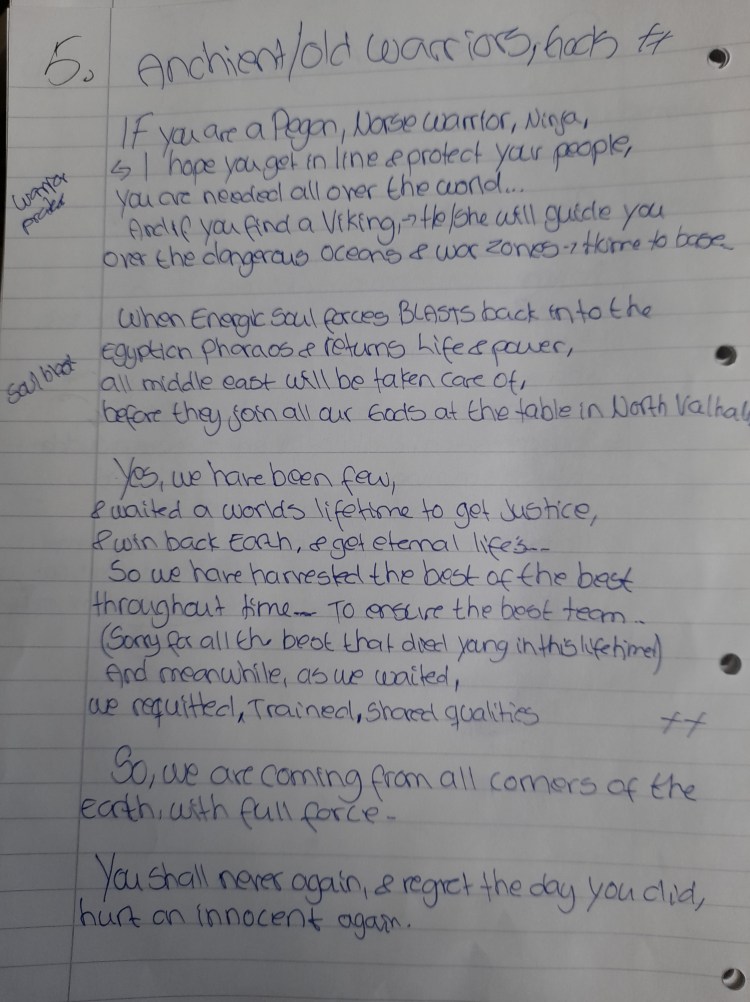 5. Anchient/old warriors, Gods ++
If you are a Pegan, Norse warrior, Ninja,
↳ I hope you get in line & protect your people,
warrior
you are needed all over the world...
And if you find a Viking, → He/she will guide you
over the dangerous oceans & war zones → Home to base
When Energic Soul forces BLASTS back into the
Egyptien Pharaos & returns Life & power,
Soul
all middle east will be taken care of,
before they join all our Gods at the table in North Valhal
Yes, we have been few,
& waited a worlds lifetime to get Justice,
& win back Earth, & get eternal life's...
So we have harvested the best of the best
throughout time... To ensure the best team..
(Sorry for all the best that died yang in this lifetime!)
And meanwhile, as we waited,
we requitted, Trained, Shared qualities ++
So, we are coming from all corners of the
earth, with full force -
You shall never again, & regret the day you did,
hurt an innocent again.